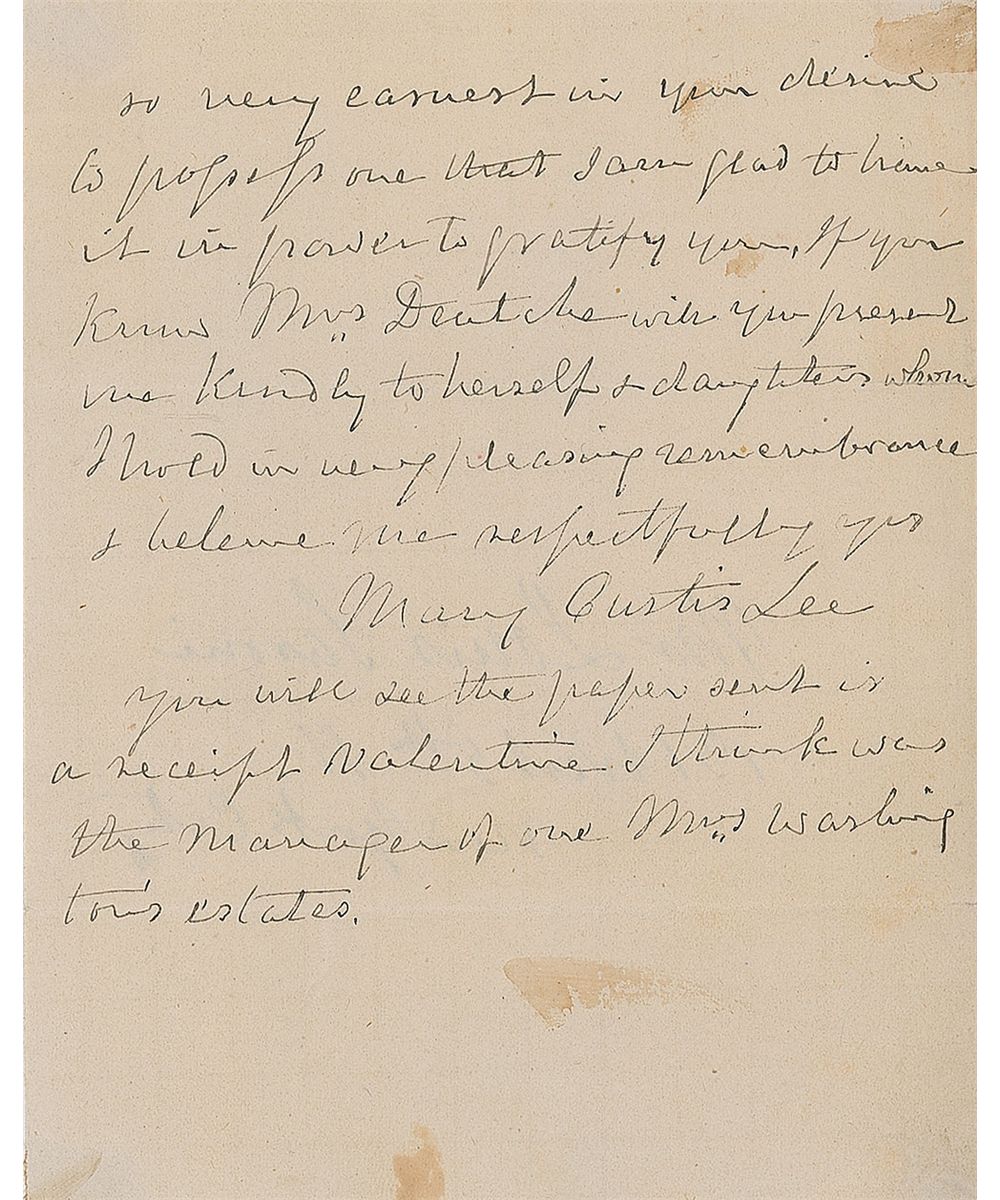 so very earnest in your desire
to possess one that I am glad to have
it in power to gratify you, If you
know Mrs Deutche will you present
me kindly to herself & daughters whom
I hold in very pleasing remembrance
& beleive me respectfully yrs
Mary Custis Lee
you will see the paper sent is
a receipt Valentine I think was
the manager of one Mrs Washing
ton's estates.